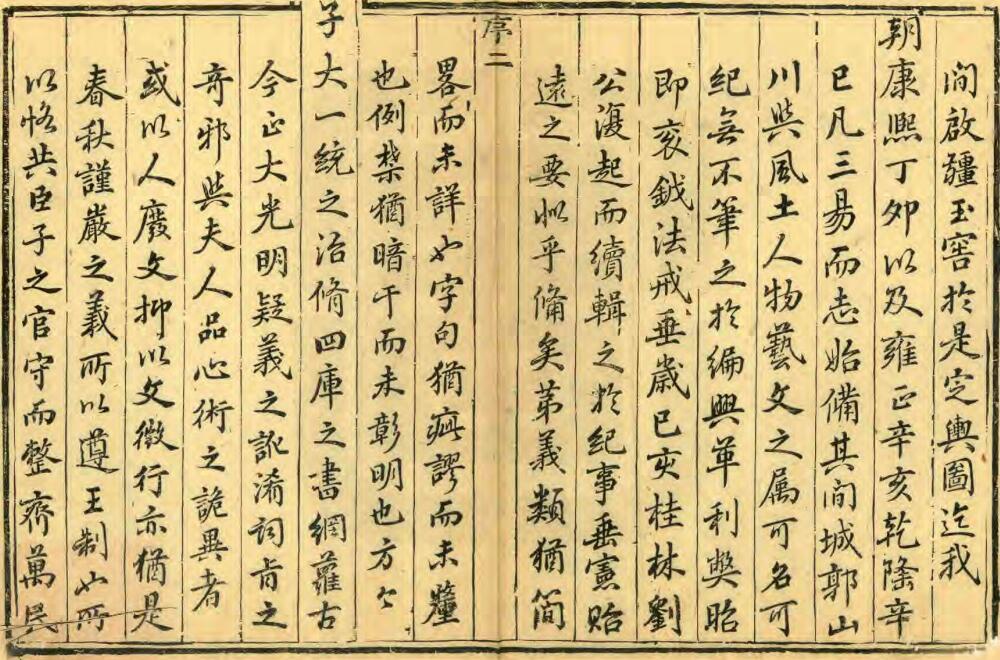 間啟疆玉窖於是定輿圖迄我
朝康熙丁夘以及雍正辛亥乾隆辛
巳凡三易而志始備其間城郭山
川與風土人物藝文之属可名可
紀無不筆之於編興革利獘昭
即衮鉞法戒垂歲己亥桂林劉
公復起而續輯之於紀事垂憲貽
遠之要似乎備矣苐義類猶簡
序二
畧而未詳也字句猶疵謬而未釐
也例槩猶暗汗而未彰明也方今
子大一統之治脩四庫之書網蘿古
今正大光明疑義之訛淆詞肯之
竒邪與夫人品心術之詭異者
或以人廢文抑以文徵行亦猶是
春秋謹嚴之義所以遵王制也所
以恪共臣子之官守而整齊萬民